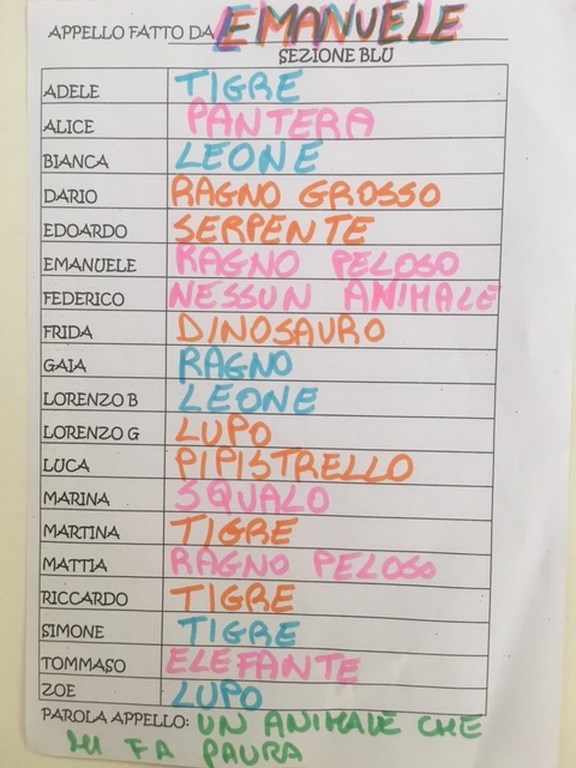 APPELLO FATTO DA EMANUELE
SEZIONE BLU
ADELE TIGRE
ALICE PANTERA
BIANCA LEONE
DARIO RAGNO GROSSO
EDOARDO SERPENTE
EMANUELE RAGNO PELOSO
FEDERICO NESSUN ANIMALE
FRIDA DINOSAURO
GAIA RAGNO
LORENZO B LEONE
LORENZO G LUPO
LUCA PIPISTRELLO
MARINA SQUALO
MARTINA TIGRE
MATTIA RAGNO PELOSO
RICCARDO TIGRE
SIMONE TIGRE
TOMMASO ELEFANTE
ZOE LUPO
PAROLA APPELLO: UN ANIMALE CHE
MI FA PAURA